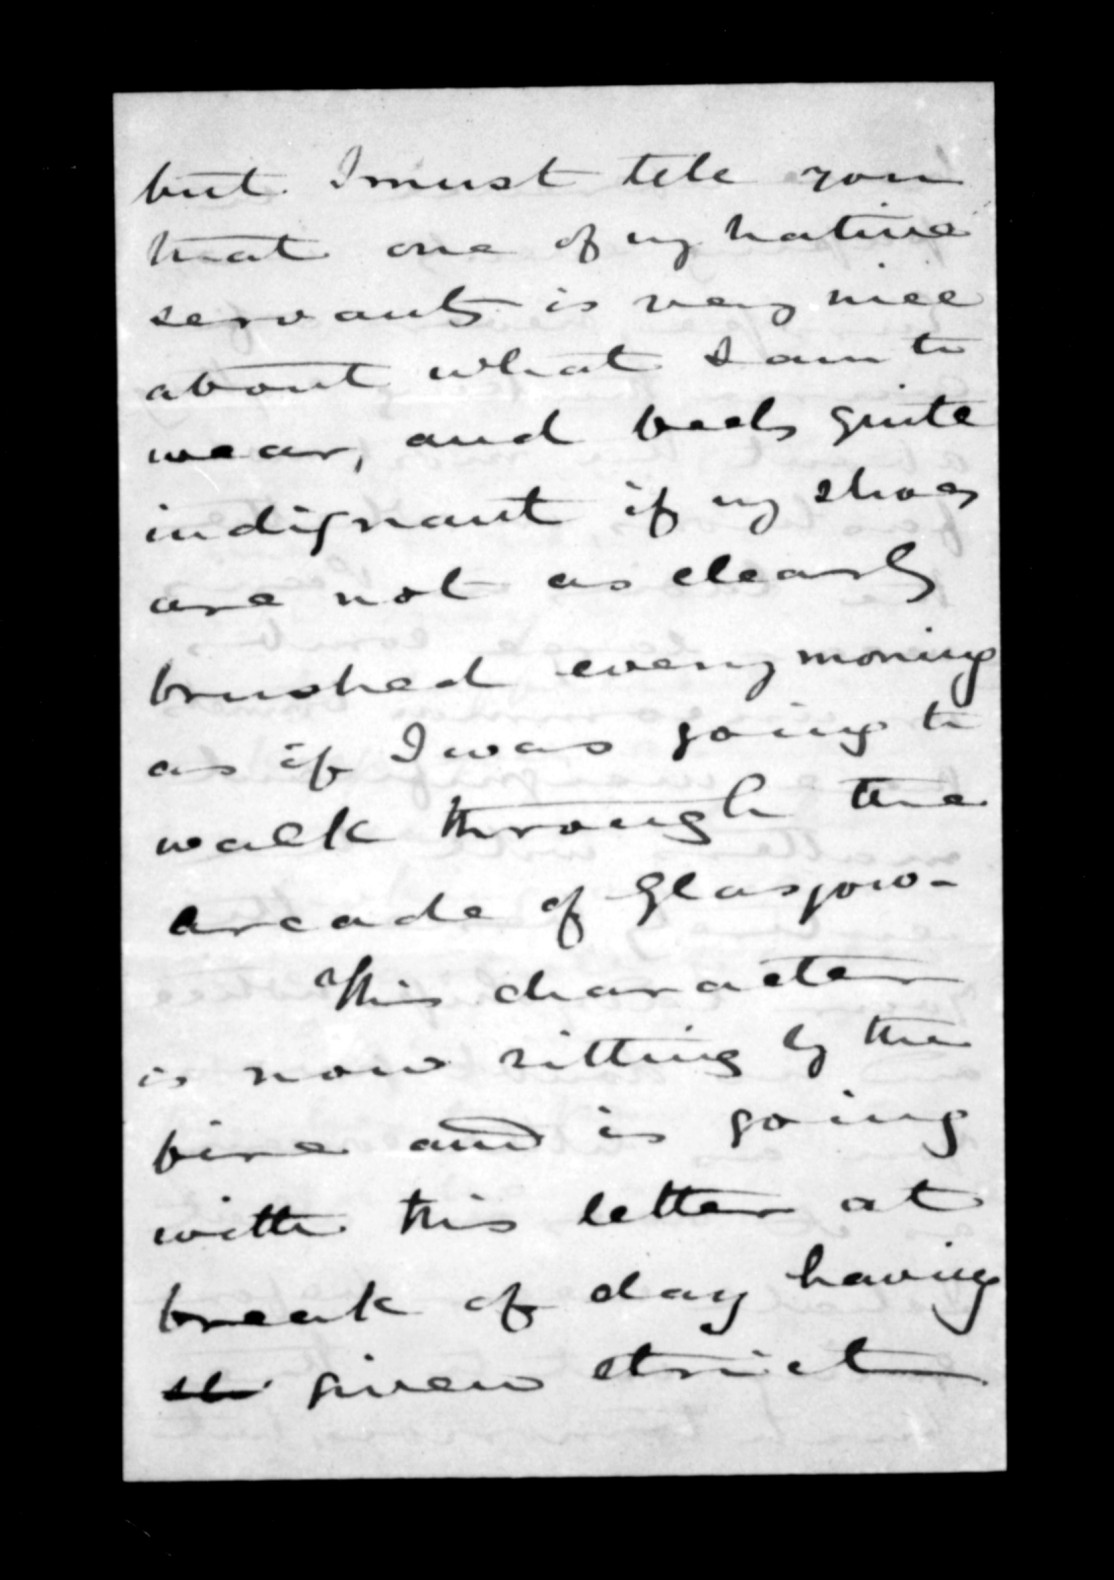 but I must tell you
that one of my native
servants is very nice
about what I am to
wear, and feels quite
indignant if my shoes
are not as clearly
brushed every moning
as if I was going to
walk through the
arcade of Glasgow -
This character
is now sitting by the
fire and is going
with this letter at
break of day having
given strict